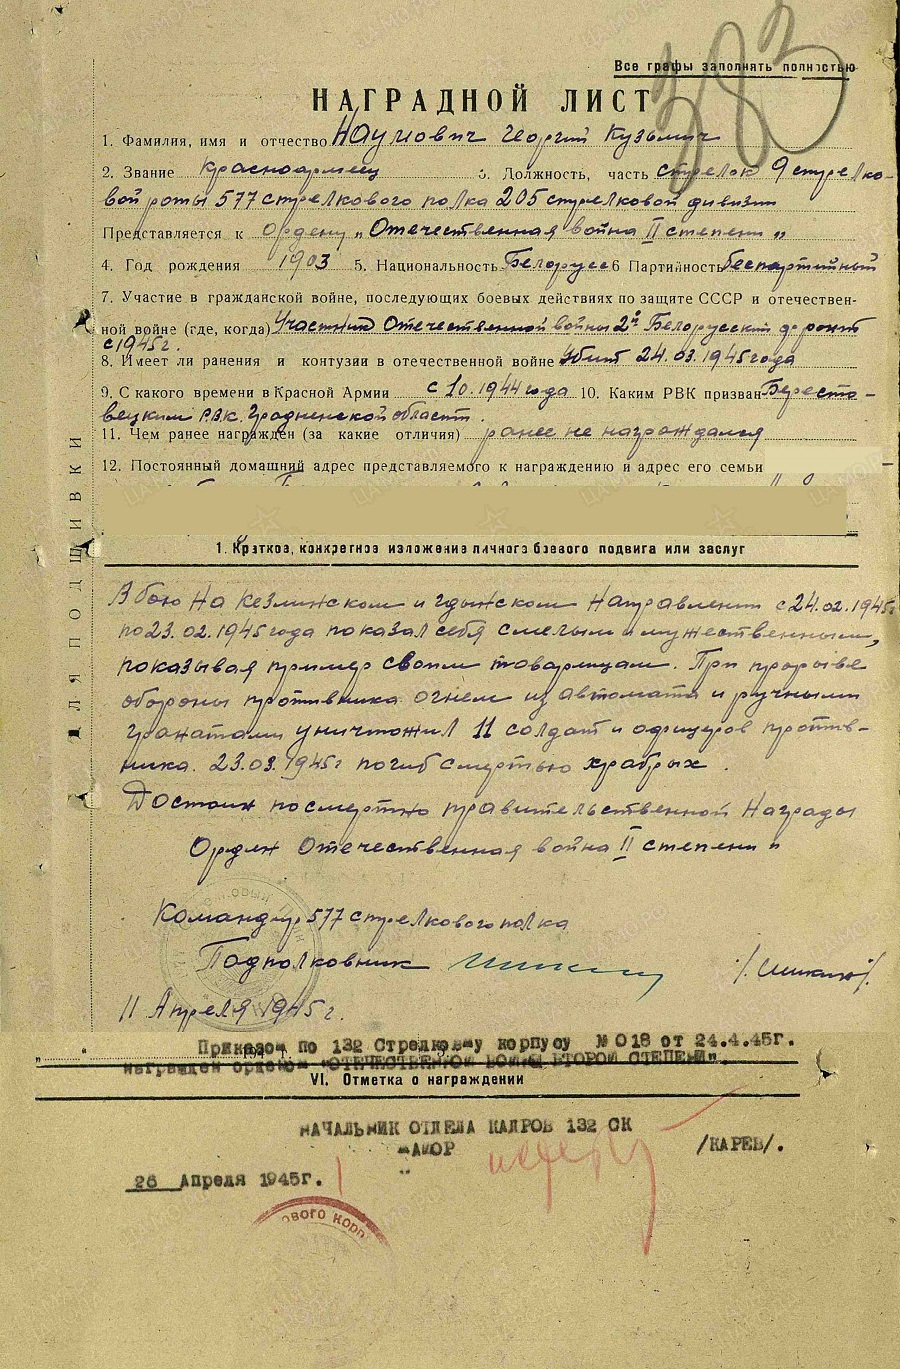 383
Все графы заполнять полностью
НАГРАДНОЙ ЛИСТ
1. Фамилия, имя и отчество Наумович Георгий Кузьмич
2. Звание Красноармеец 3. Должность, часть стрелок 9 стрелко-
вой роты 577 стрелкового полка 205 стрелковой дивизии
Представляется к ордену „Отечественная война II степени"
4. Год рождения 1903 5. Национальность Белорусс 6 Партийность беспартийный
7. Участие в гражданской войне, последующих боевых действиях по защите СССР и отечествен-
ной войне (где, когда) Участник Отечественной войны 2й Белорусский фронт
с 1945 г.
8. Имеет ли ранения и контузии в отечественной войне Убит 24.03.1945 года
9. С какого времени в Красной Армии с 10.1944 года 10. Каким РВК призван Бересто-
вецким РВК. Гродненской области.
11. Чем ранее награжден (за какие отличия) ранее не награждался
12. Постоянный домашний адрес представляемого к награждению и адрес его семьи
1. Краткое, конкретное изложение личного боевого подвига или заслуг
В бою на кезлинском и гдынском направлении с 24.02.1945г
по 23.02.1945 года показал себя смелым и мужественным,
показывая пример своим товарищам. При прорыве
обороны противника огнем из автомата и ручными
гранатами уничтожил 11 солдат и офицеров против-
ника. 23.03.1945г погиб смертью храбрых.
Достоин посмертно правительственной Награды
Орден Отечественная война II степени"
Командир 577 стрелкового полка
Подполковник
11 Апреля 1945 г.
Приказом по 132 Стрелковому корпусу №018 от 24.4.45г.
награжден орденом "ОТЕЧЕСТВЕННОЙ ВОЙНЫ ВТОРОЙ СТЕПЕНИ".
VI. Отметка о награждении
НАЧАЛЬНИК ОТДЕЛА КАДРОВ 132 СК
МАЙОР /КАРЕВ/.
26 Апреля 1945г.
ДЛЯ ПОДШИВКИ